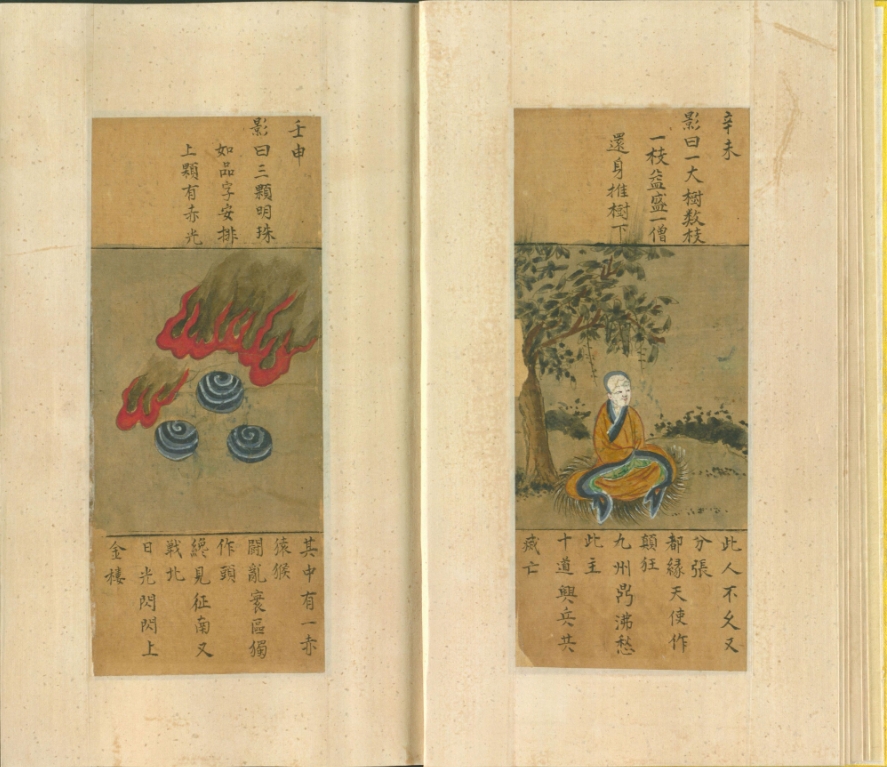 辛未
影曰一大樹数枝
一枝益盛一僧
還身推樹下
此人不久又
分張
都緣天使作
顛狂
九州鼎沸愁
此主
十道興兵共
滅亡
壬申
影曰三顆明珠
如品字安排
上顆有赤光
其中有一赤
猿猴
鬪亂寰區獨
作頭
總見征南又
戰北
日光閃閃上
金樓